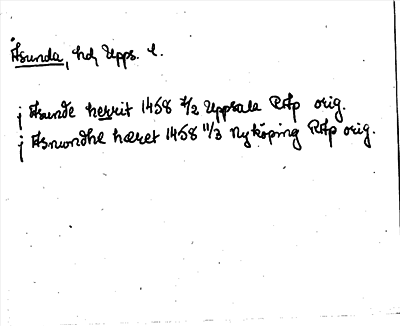 Åsunda, hd, Upps. l.
j Asunde herrit 1458 7/2 Uppsala RAp orig.
j Asmondhe hæret 1458 11/3 Nyköping RAp orig.